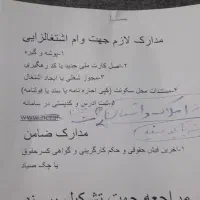 مدارک لازم جهت وام اشتغالزایی
۱-پوشه و گیره
۲-اصل کارت ملی جدید یا کد رهگیری
۳-مجوز شغلی یا ایجاد اشتغال
۴-مستندات محل سکونت (کپی اجاره نامه یا سند یا قولنامه)
۵-ثبت آدرس و کدپستی در سامانه
مدارک ضامن
۱-آخرین فیش حقوقی و حکم کارگزینی و گواهی کسر حقوق
یا چک صیاد
مراجعه جهت تشکیل پرونده